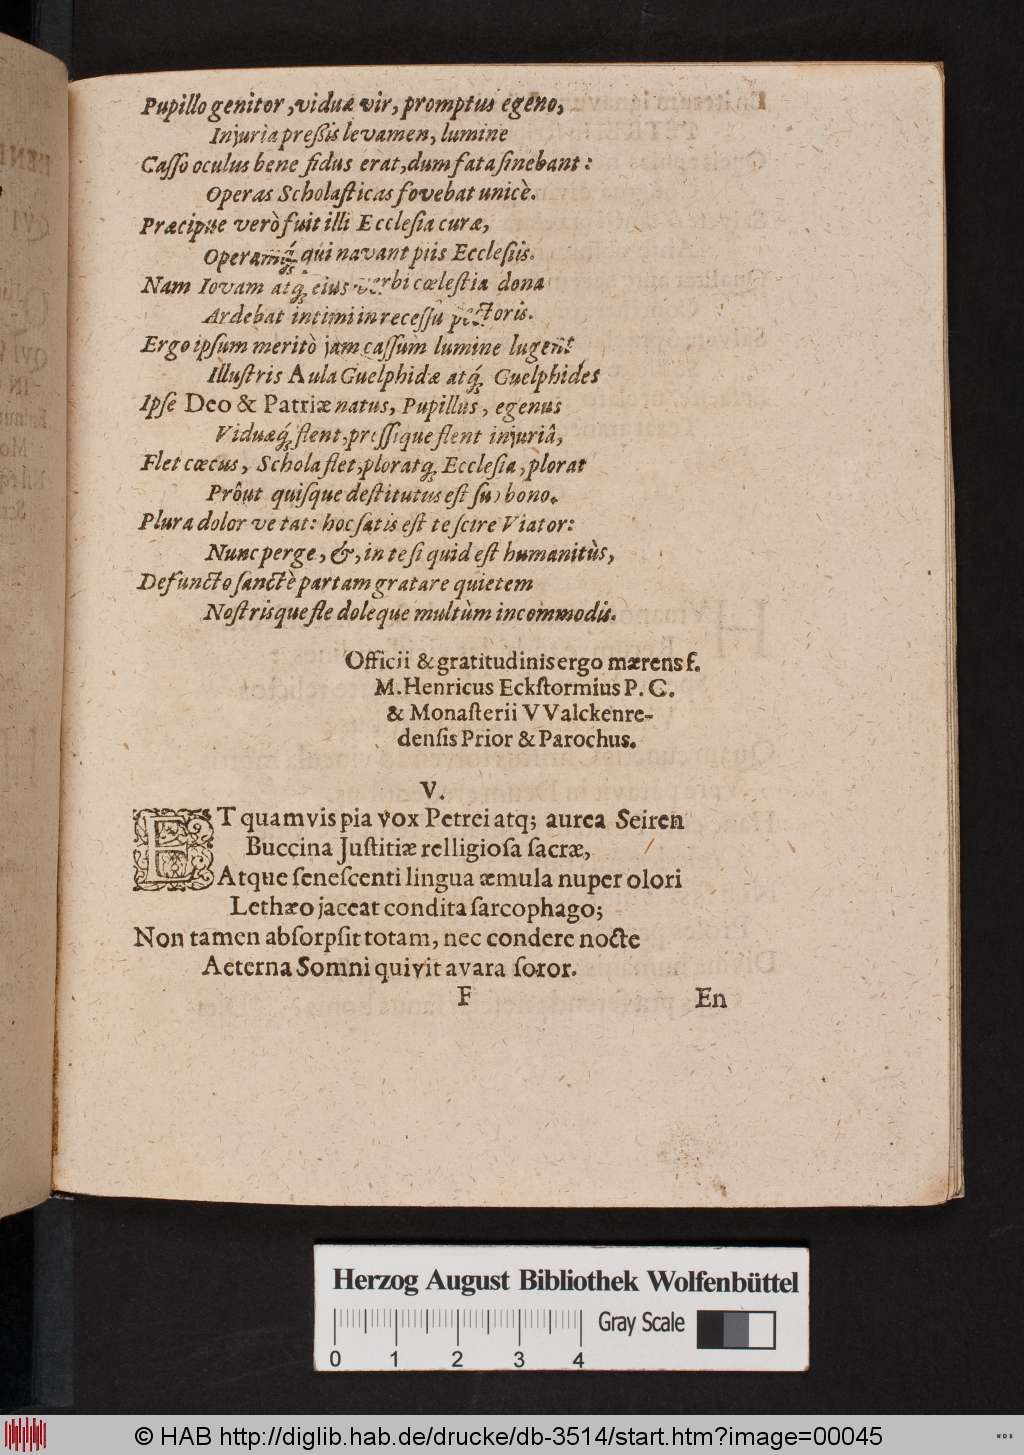 Pupillo genitor, viduæ vir, promptus egeno,
Injuria preßis levamen, lumine
Casso oculus bene fidus erat, dum fata sinebant:
Operas Scholasticas fovebat unicè.
Præcipue verò fuit illi Ecclesia curæ,
Operamq́; qui navant piis Ecclesiis.
Nam Iovam atq́; eius verbi cœlestia dona
Ardebat intimi in recessu pectoris.
Ergo ipsum meritò jam cassum lumine lugent
Illustris Aula Guelphidæ atq́; Guelphides
Ipse Deo & Patriæ natus, Pupillus, egenus
Viduæq́; flent, pressique flent injuriâ,
Flet cœcus, Schola flet, ploratq; Ecclesia, plorat
Prôut quisque destitutus est suo bono.
Plura dolor vetat: hoc satis est te scire Viator:
Nunc perge, &, in te si quid est humanitùs,
Defuncto sanctè partam gratare quietem
Nostrisque fle doleque multùm incommodis.
Officii & gratitudinis ergo mærens f.
M. Henricus Eckstormius P. C.
& Monasterii VValckenre-
densis Prior & Parochus.
V.
ET quamvis pia vox Petrei atq; aurea Seiren
Buccina Justitiæ relligiosa sacræ,
Atque senescenti lingua æmula nuper olori
Lethæo jaceat condita sarcophago;
Non tamen absorpsit totam, nec condere nocte
Aeterna Somni quivit avara soror.
F En
Herzog August Bibliothek Wolfenbüttel
Gray Scale
0 1 2 3 4
© HAB http://diglib.hab.de/drucke/db-3514/start.htm?image=00045